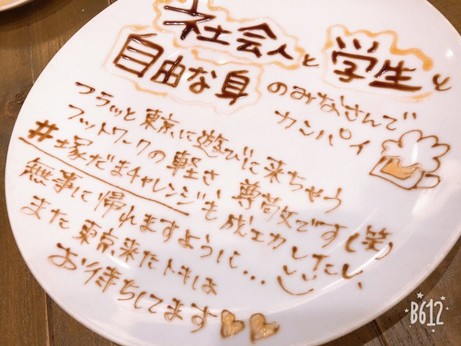 社会人と学生と
自由な身のみなさんで
カンパイ
フラッと東京に遊びに来ちゃう
フットワークの軽さ 尊敬です(笑)
#土塚だまチャレンジも成工力したし、
無事に帰れますように…
また東京来たトキは
お待ちしてます
B612